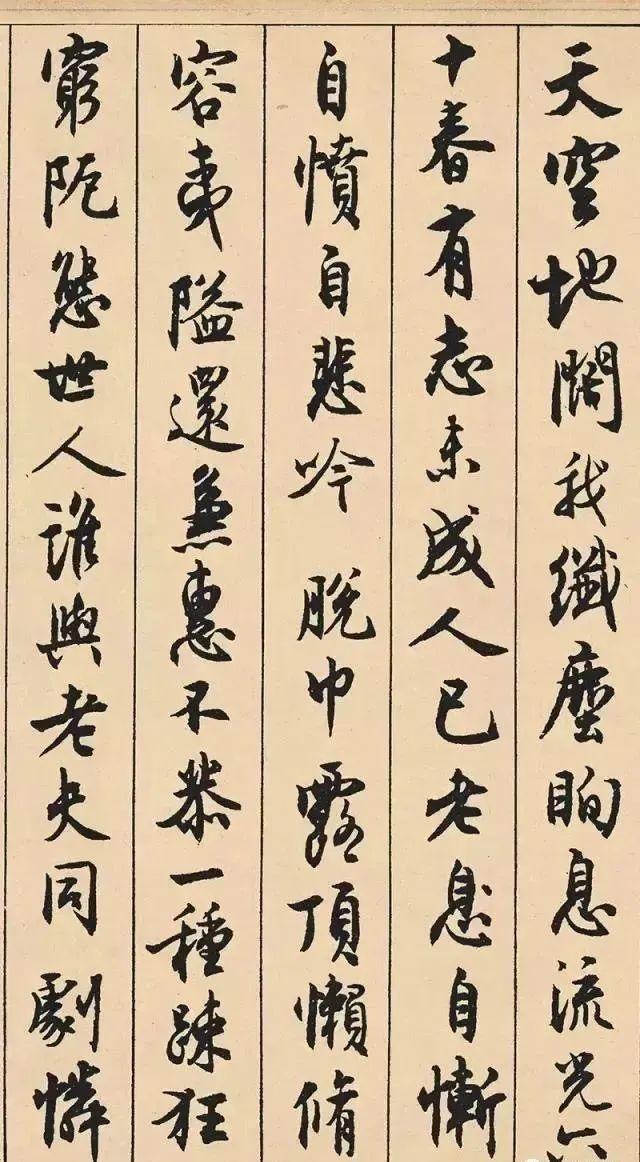 天空地闊我纖塵眴息流光六
十春有志未成人已老息自慚
自憤自悲吟 脫巾露頂懶脩
容夷隘還兼惠不恭一種踈狂
窮阨態世人誰與老夫同劇憐